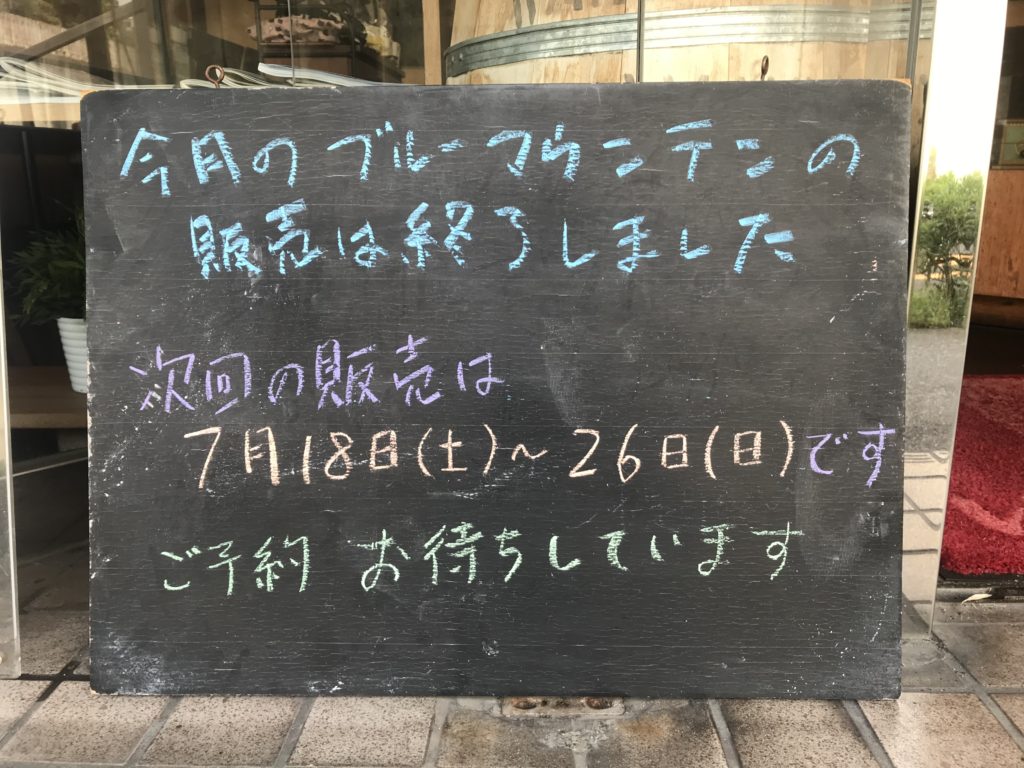 今月のブルーマウンテンの
販売は終了しました
次回の販売は
7月18日(土)~26日(日)です
ご予約 お待ちしています